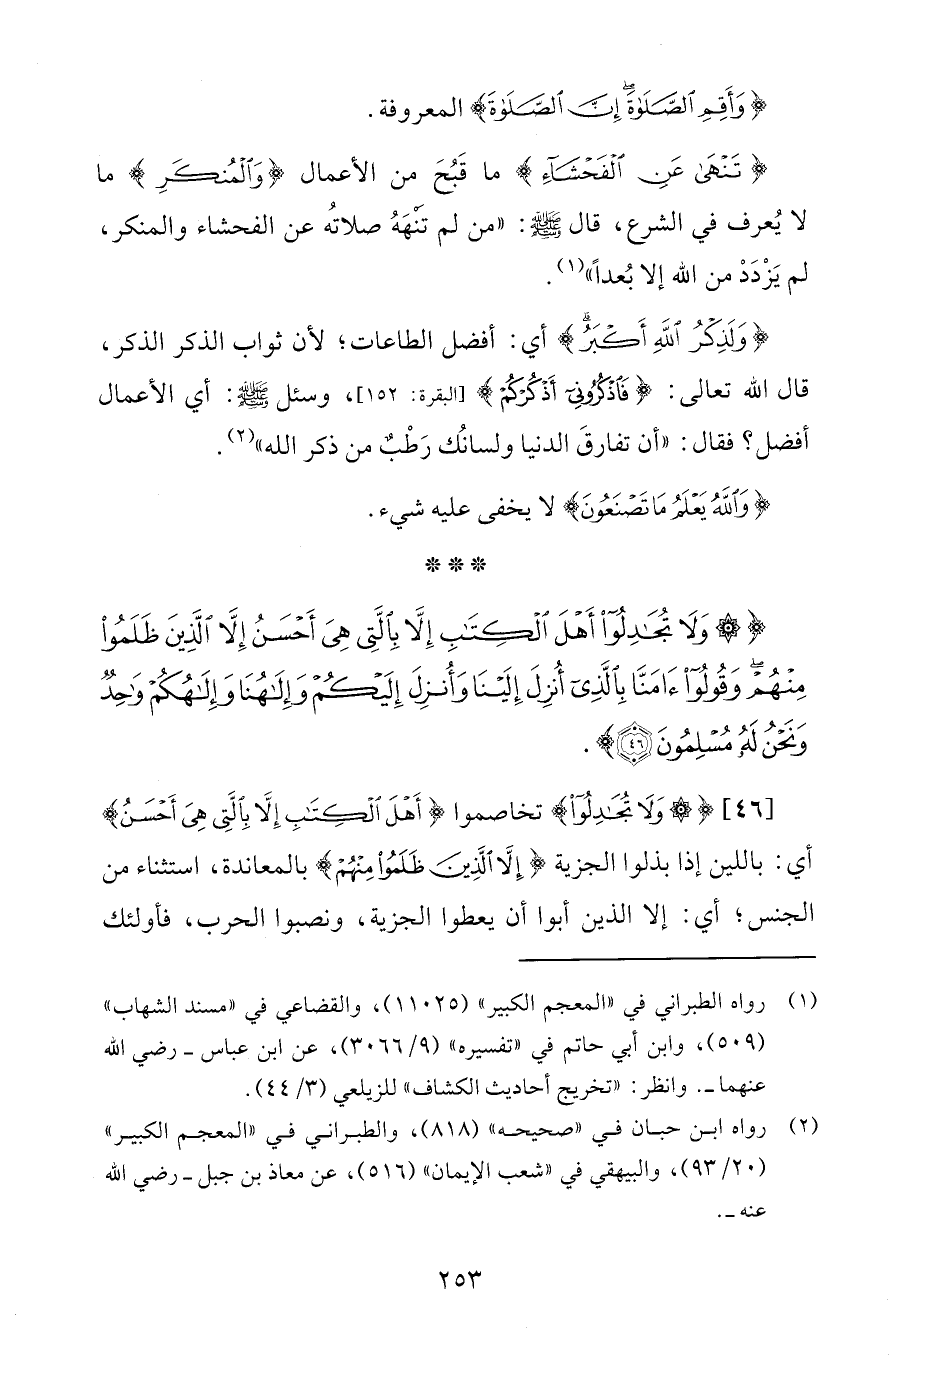 ﴿ وَأَقِمِ ٱلصَّلَوٰةَۖ إِنَّ ٱلصَّلَوٰةَ﴾ المعروفة.
﴿ تَنْهَىٰ عَنِ ٱلْفَحْشَآءِ ﴾ ما قَبُحَ من الأعمال ﴿وَٱلْمُنكَرِ ﴾ ما
لا يُعرف في الشرع، قال ﷺ: «من لم تَنْهَهُ صلاتُه عن الفحشاء والمنكر،
لم يَزْدَدْ من الله إلا بُعداً»(١).
﴿ وَلَذِكْرُ ٱللَّهِ أَكْبَرُۗ ﴾ أي: أفضل الطاعات؛ لأن ثواب الذكر الذكر،
قال الله تعالى: ﴿ فَٱذْكُرُونِيٓ أَذْكُرْكُمْ ﴾ [البقرة: ١٥٢]، وسئل ﷺ: أي الأعمال
أفضل؟ فقال: «أن تفارقَ الدنيا ولسانُك رَطْبٌ من ذكر الله»(٢).
﴿ وَٱللَّهُ يَعْلَمُ مَا تَصْنَعُونَ﴾ لا يخفى عليه شيء.
* * *
﴿ ۞ وَلَا تُجَٰدِلُوٓا۟ أَهْلَ ٱلْكِتَٰبِ إِلَّا بِٱلَّتِى هِىَ أَحْسَنُ إِلَّا ٱلَّذِينَ ظَلَمُوا۟
مِنْهُمْۖ وَقُولُوٓا۟ ءَامَنَّا بِٱلَّذِىٓ أُنزِلَ إِلَيْنَا وَأُنزِلَ إِلَيْكُمْ وَإِلَٰهُنَا وَإِلَٰهُكُمْ وَٰحِدٌ
وَنَحْنُ لَهُۥ مُسْلِمُونَ ٤٦﴾ .
[٤٦] ﴿ ۞ وَلَا تُجَٰدِلُوٓا۟﴾ تخاصموا ﴿ أَهْلَ ٱلْكِتَٰبِ إِلَّا بِٱلَّتِى هِىَ أَحْسَنُ﴾
أي: باللين إذا بذلوا الجزية ﴿ إِلَّا ٱلَّذِينَ ظَلَمُوا۟ مِنْهُمْ﴾ بالمعاندة، استثناء من
الجنس؛ أي: إلا الذين أبوا أن يعطوا الجزية، ونصبوا الحرب، فأولئك
(١) رواه الطبراني في «المعجم الكبير» (١١٠٢٥)، والقضاعي في «مسند الشهاب»
(٥٠٩)، وابن أبي حاتم في «تفسيره» (٣٠٦٦/٩)، عن ابن عباس ـ رضي الله
عنهما ـ. وانظر: «تخريج أحاديث الكشاف» للزيلعي (٣/ ٤٤).
(٢) رواه ابن حبان في «صحيحه» (٨١٨)، والطبراني في «المعجم الكبير»
(٢٠/ ٩٣)، والبيهقي في «شعب الإيمان» (٥١٦)، عن معاذ بن جبل ـ رضي الله
عنه ـ.
٢٥٣